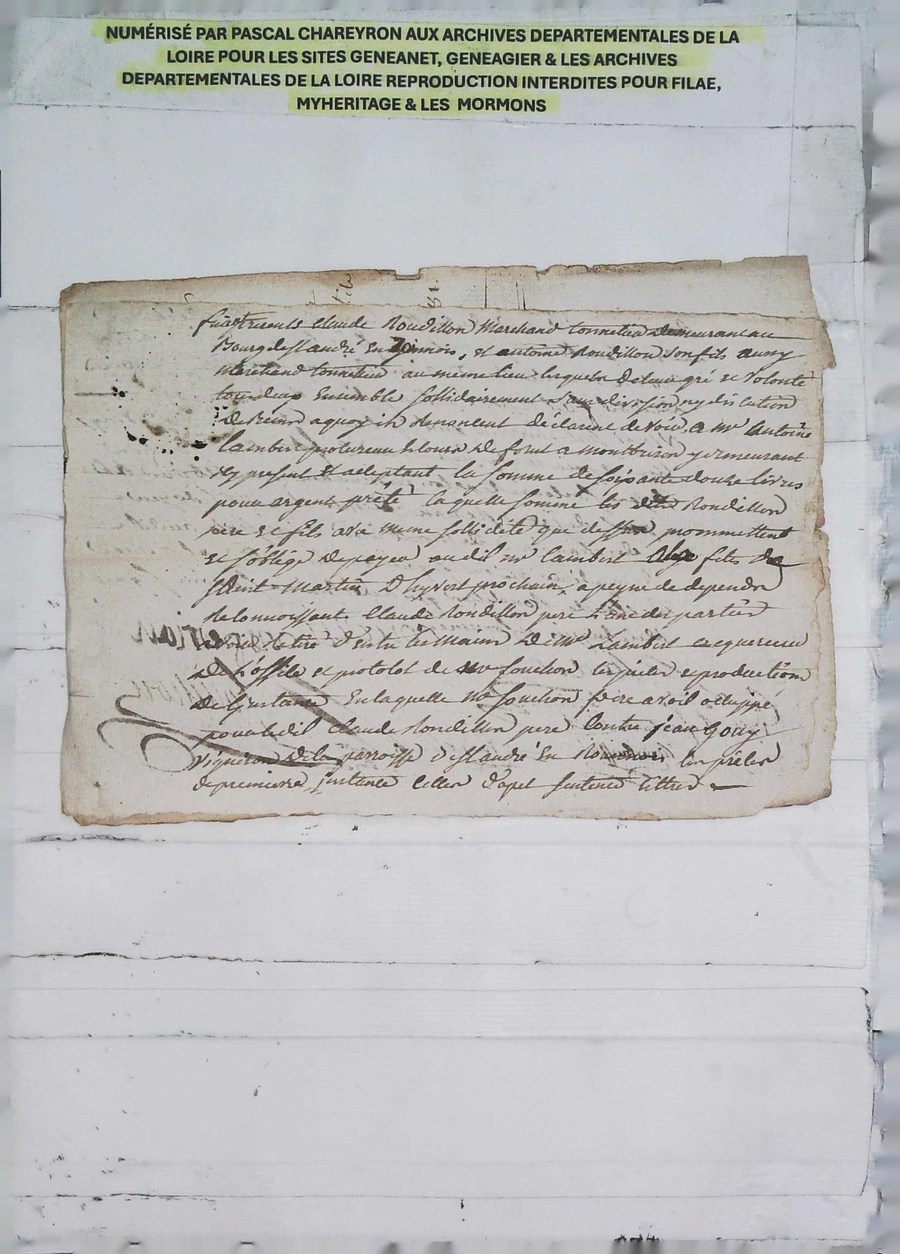 NUMÉRISÉ PAR PASCAL CHAREYRON AUX ARCHIVES DEPARTEMENTALES DE LA
LOIRE POUR LES SITES GENEANET, GENEAGIER & LES ARCHIVES
DEPARTEMENTALES DE LA LOIRE REPRODUCTION INTERDITES POUR FILAE,
MYHERITAGE & LES MORMONS
furent presents Claude Rondillon Marchand tonnelier demeurant au
Bourg de St André en, et antoine Rondillon son fils aussy
Marchand tonnelier au meme lieu lesquels de leur gré et volonté
tous deux Ensemble sollidairement sans division ny discution
a quoy ils renoncent déclarent devoir a Mr Antoine
Lambert procureur de forest a Montbrison y demeurant
Icy present et acceptant la somme de soixante douze livres
pour argent prété laquelle somme les dits Rondillon
pere et fils a la meme sollidité que dessus promettent
et s'oblige de payer audit mr Lambert fete de
saint Martin D'hyvert prochain, a peyne de depends
Reconnoissant Claude Rondillon pere l'une des parties
retiré D'entre les mains De Mr Lambert acquereur
De l'office et de mr fouchon les pieces et production
De l'instance En laquelle Mr fouchon frere avoit occuppé
pour ledit Claude Rondillon pere Contre Jean Gouy
Vigneron de la parroisse De St André En Roannois les pieces
de premiere instance celles D'apel sentence lettres